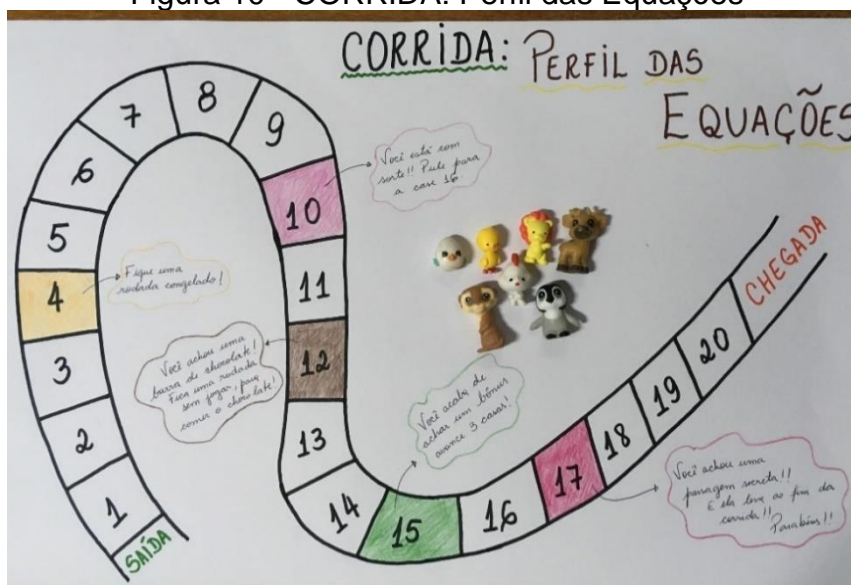 Figura 10 - CORRIDA: Perfil das Equações
CORRIDA: PERFIL DAS
EQUAÇÕES
SAÍDA
1
2
3
4
Fique uma
rodada congelado!
5
6
7
8
9
10
Você está com
sorte!! Pule para
a case 16.
11
12
Você achou uma
barra de chocolate!
Fica uma rodada
sem jogar, para
comer o chocolate!
13
14
15
Você acaba de
achar um bônus
avance 3 casas!
16
17
Você achou uma
passagem secreta!!
E ela leva ao fim da
corrida!!
Parabéns!!
18
19
20
CHEGADA